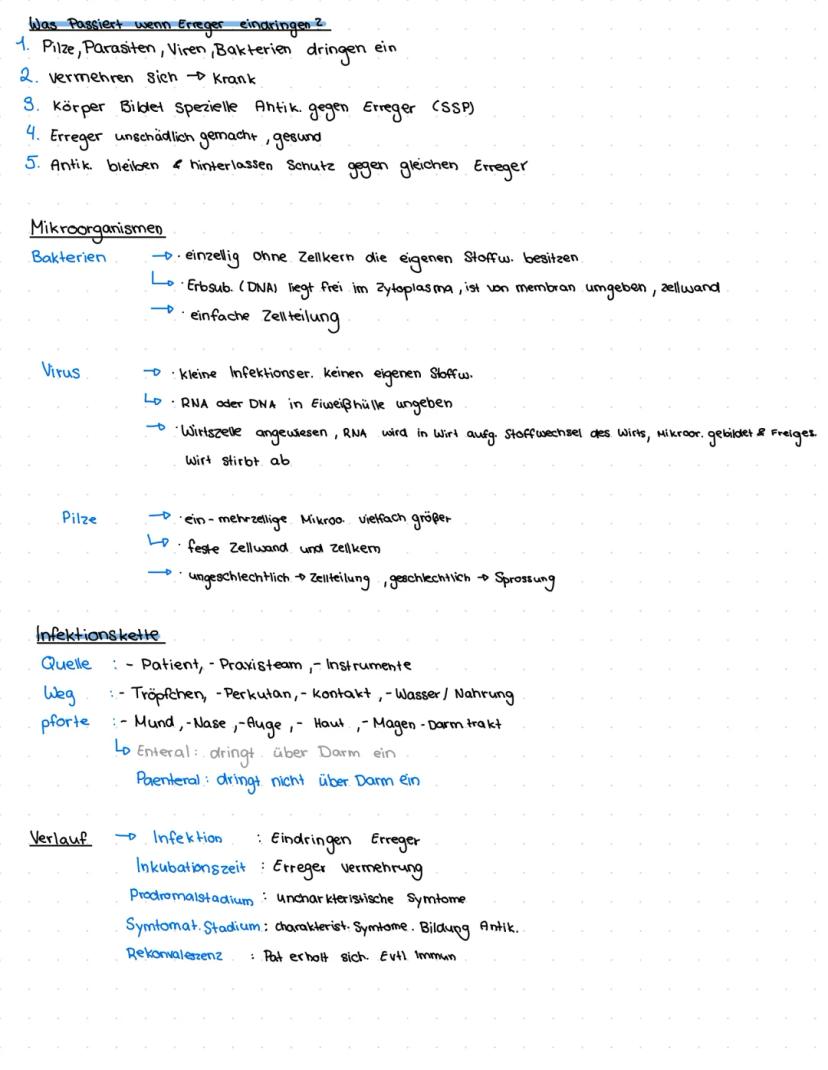 Was Passiert wenn Erreger eindringen?
1. Pilze, Parasiten, Viren, Bakterien dringen ein
2. vermehren sich → Krank
3. Körper Bildet Spezielle Antik. gegen Erreger (SSP)
4. Erreger unschädlich gemacht, gesund
5. Antik. bleiben & hinterlassen Schutz gegen gleichen Erreger
Mikroorganismen
Bakterien → · einzellig ohne Zellkern die eigenen Stoffw. besitzen
↳ · Erbsub. (DNA) liegt frei im Zytoplasma, ist von membran umgeben, zellwand
→ · einfache Zellteilung
Virus → · kleine Infektionser. keinen eigenen Stoffw.
↳ · RNA oder DNA in Eiweißhülle ungeben
→ · Wirtszelle angewiesen, RNA wird in Wirt aufg. Stoffwechsel des Wirts, Mikroor. gebildet & Freiges.
Wirt stirbt ab
Pilze → · ein-mehrzellige Mikroo. vielfach größer
↳ · feste Zellwand und Zellkern
→ · ungeschlechtlich → Zellteilung, geschlechtlich → Sprossung
Infektionskette
Quelle : - Patient, - Praxisteam, - Instrumente
Weg : - Tröpfchen, - Perkutan, - Kontakt, - Wasser / Nahrung
pforte : - Mund, - Nase, - Auge, - Haut, - Magen - Darmtrakt
↳ Enteral : dringt über Darm ein
Paenteral : dringt nicht über Darm ein
Verlauf → Infektion : Eindringen Erreger
Inkubationszeit : Erreger vermehrung
Prodromalstadium : uncharkteristische Symtome
Symtomat. Stadium : charakterist. Symtome. Bildung Antik.
Rekonvaleszenz : Pat erholt sich. Evtl Immun